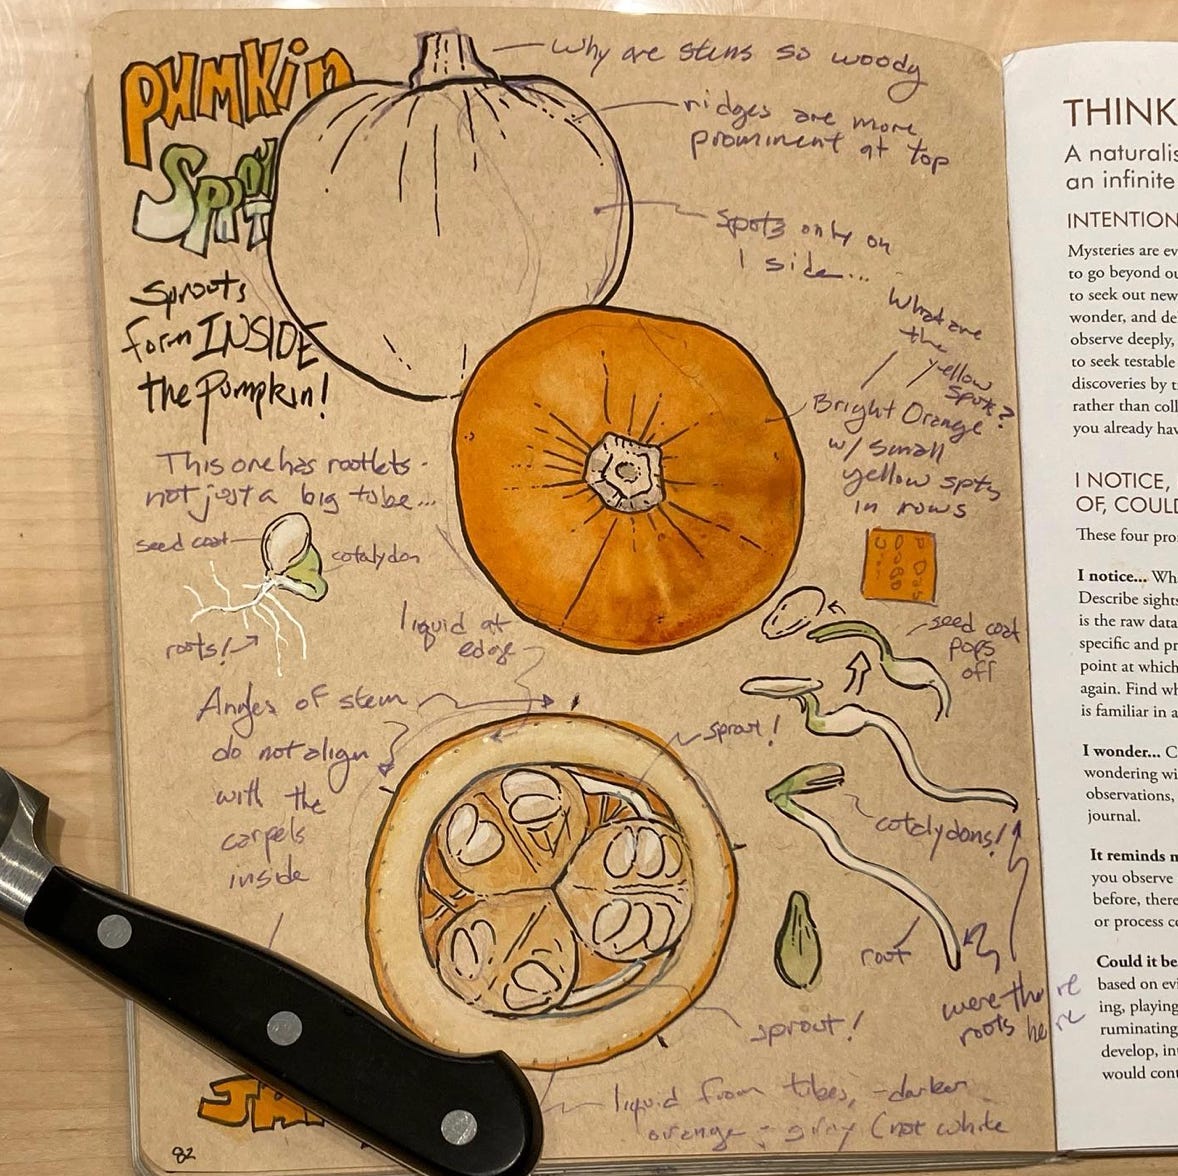 PUMKin
Why are stems so woody
ridges are more
prominent at top
Spots only on
1 side...
Sprouts
form INSIDE
the Pumpkin!
What are
the
yellow
spots?
Bright Orange
w/ small
yellow spts
in rows
This one has rootlets -
not just a big tube...
seed coat
cotalydon
roots!
liquid at
edge
seed coat
pops
off
Angles of stem
do not align
with the
carpels
inside
sprout!
cotalydons!
root
were the re
roots he re
sprout!
liquid from tubes, -darker
orange - gray (not white
82
THINK
A naturalis
an infinite
INTENTION
Mysteries are ev
to go beyond ou
to seek out new
wonder, and de
observe deeply,
to seek testable
discoveries by t
rather than coll
you already hav
I NOTICE,
OF, COULD
These four pro
I notice... Wh
Describe sights
is the raw data
specific and pr
point at which
again. Find wh
is familiar in a
I wonder... C
wondering wi
observations,
journal.
It reminds m
you observe
before, there
or process co
Could it be
based on evi
ing, playing
ruminating
develop, in
would cont